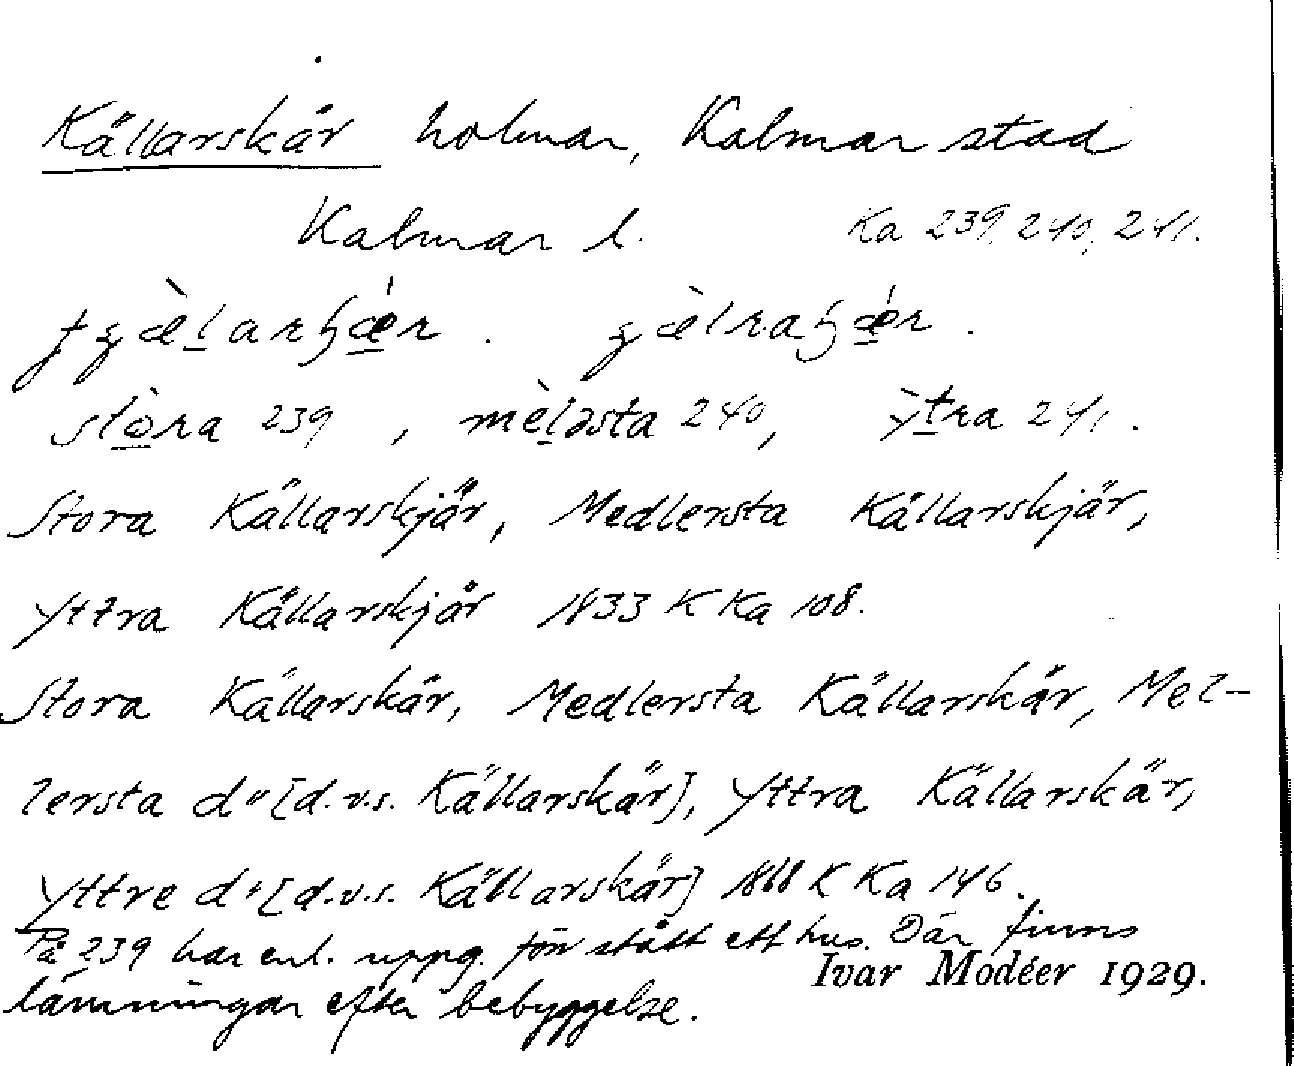 Källarskär holmar, Kalmar stad
Kalmar l. Ka 239, 240, 241.
stòra 239, mèləsta 240, ỳtra 241.
Stora Källarskjär, Medlersta Källarskjär,
Yttra Källarskjär 1833 K Ka 108.
Stora Källarskär, Medlersta Källarskär, Mel-
lersta d:o [d.v.s. Källarskär], Yttra Källarskär,
Yttre d:o [d.v.s. Källarskär] 1868 K Ka 146.
På 239 har enl. uppg. förr stått ett hus. Där finns
lämningar efter bebyggelse.
Ivar Modéer 1929.